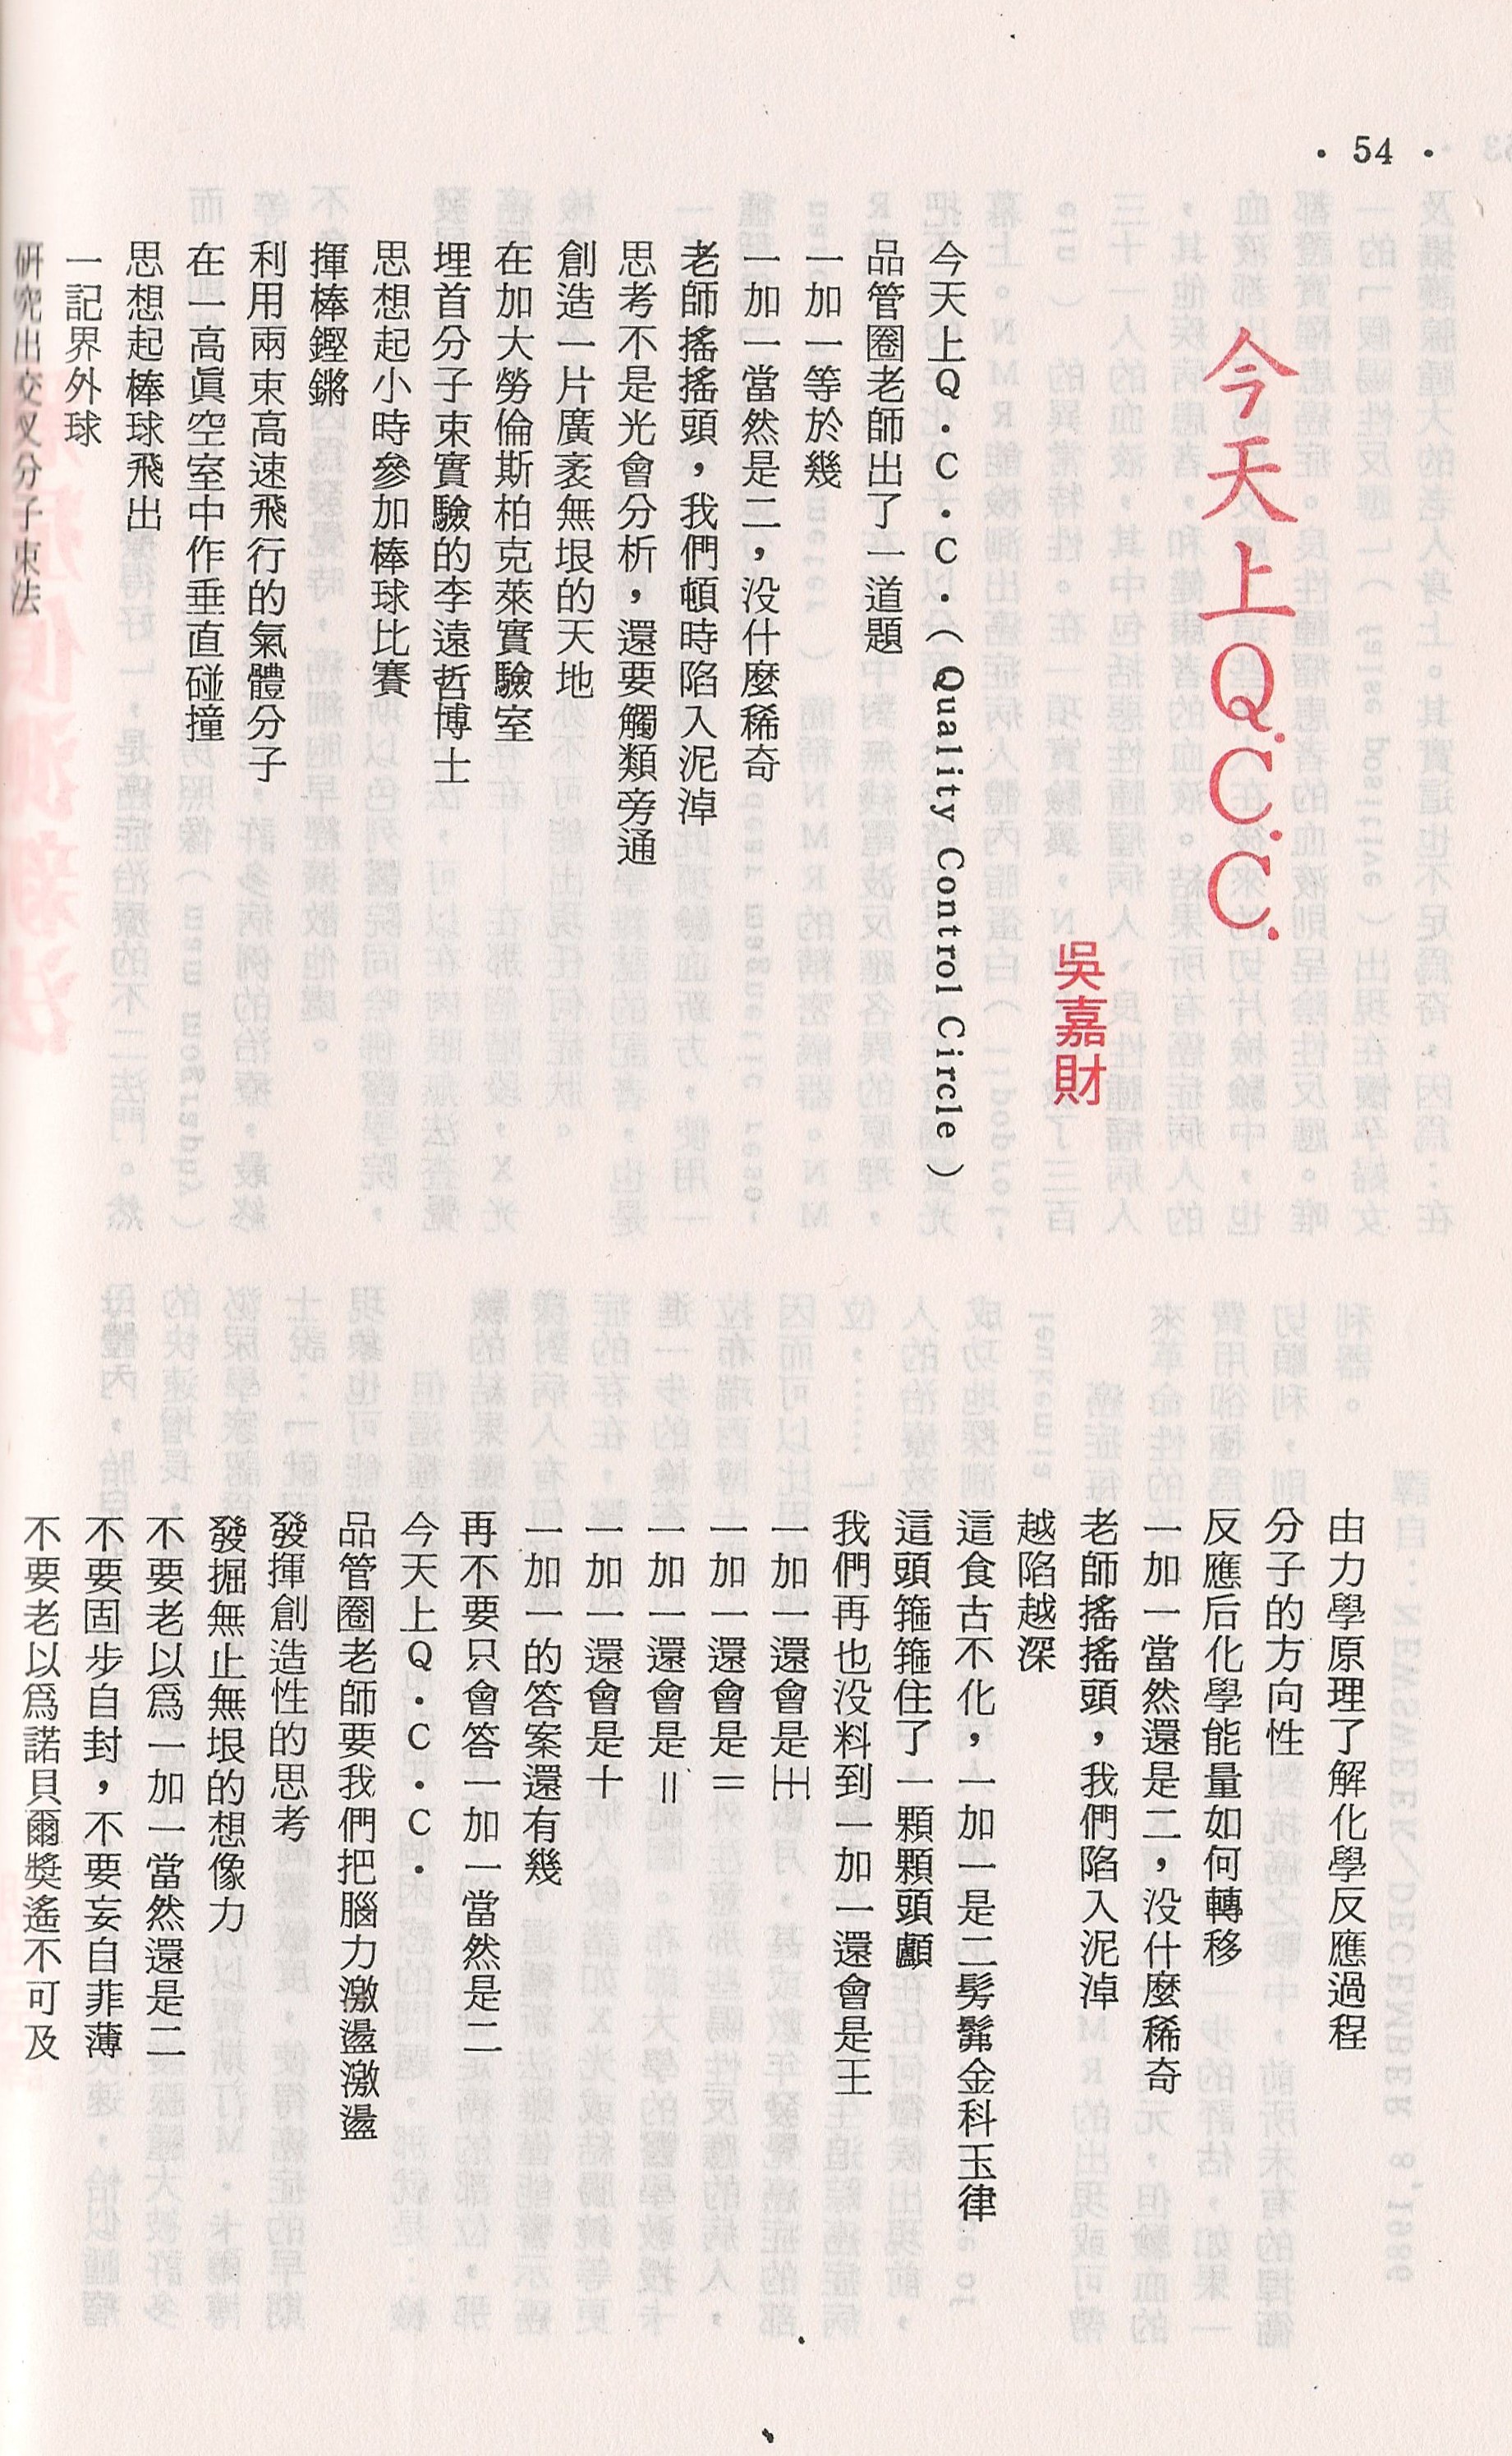 · 54 ·
今天上Q.C.C.
吳嘉財
今天上Q·C·C·（Quality Control Circle）
品管圈老師出了一道題
一加一等於幾
一加一當然是二，没什麼稀奇
老師搖搖頭，我們頓時陷入泥淖
思考不是光會分析，還要觸類旁通
創造一片廣袤無垠的天地
在加大勞倫斯柏克萊實驗室
埋首分子束實驗的李遠哲博士
思想起小時參加棒球比賽
揮棒鏗鏘
利用兩束高速飛行的氣體分子
在一高眞空室中作垂直碰撞
思想起棒球飛出
一記界外球
研究出交叉分子束法
由力學原理了解化學反應過程
分子的方向性
反應后化學能量如何轉移
一加一當然還是二，没什麼稀奇
老師搖搖頭，我們陷入泥淖
越陷越深
這食古不化，一加一是二髣髴金科玉律
這頭箍箍住了一顆顆頭顱
我們再也没料到一加一還會是王
一加一還會是田
一加一還會是＝
一加一還會是||
一加一還會是十
一加一的答案還有幾
再不要只會答一加一當然是二
今天上Q·C·C·
品管圈老師要我們把腦力激盪激盪
發揮創造性的思考
發掘無止無垠的想像力
不要老以爲一加一當然還是二
不要固步自封，不要妄自菲薄
不要老以爲諾貝爾獎遙不可及